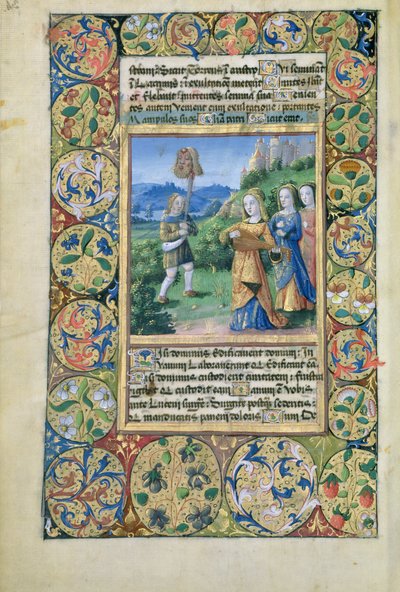 in Lacrimis in exultatione metent Euntes Ibāt
et flebant mittentes semina sua Venien
tes autem venient cum exultatione portantes
Manipulos suos Gloria patri Sicut erat
Nisi dominus Edificaverit domum In
Vanum Laboraverunt Qui Edificant eā
Nisi dominus custodierit civitatem frustra
vigilat Qui custodit eam Vanum est vobis
ante Lucem surgere Surgite postquam sederitis
Qui manducatis panem doloris Cum De